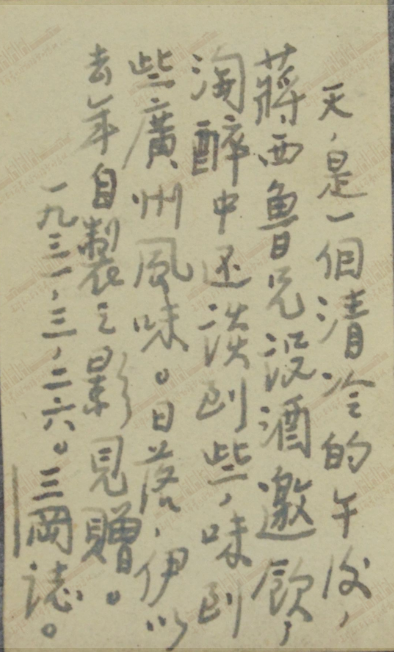 天，是一個清冷的午後，
蔣西魯兄沒酒邀飲，
淘醉中还淡到些，味到
些廣州風味。日落，伊以
去年自製之影見贈。
一九三一，三，二六。三岡誌。